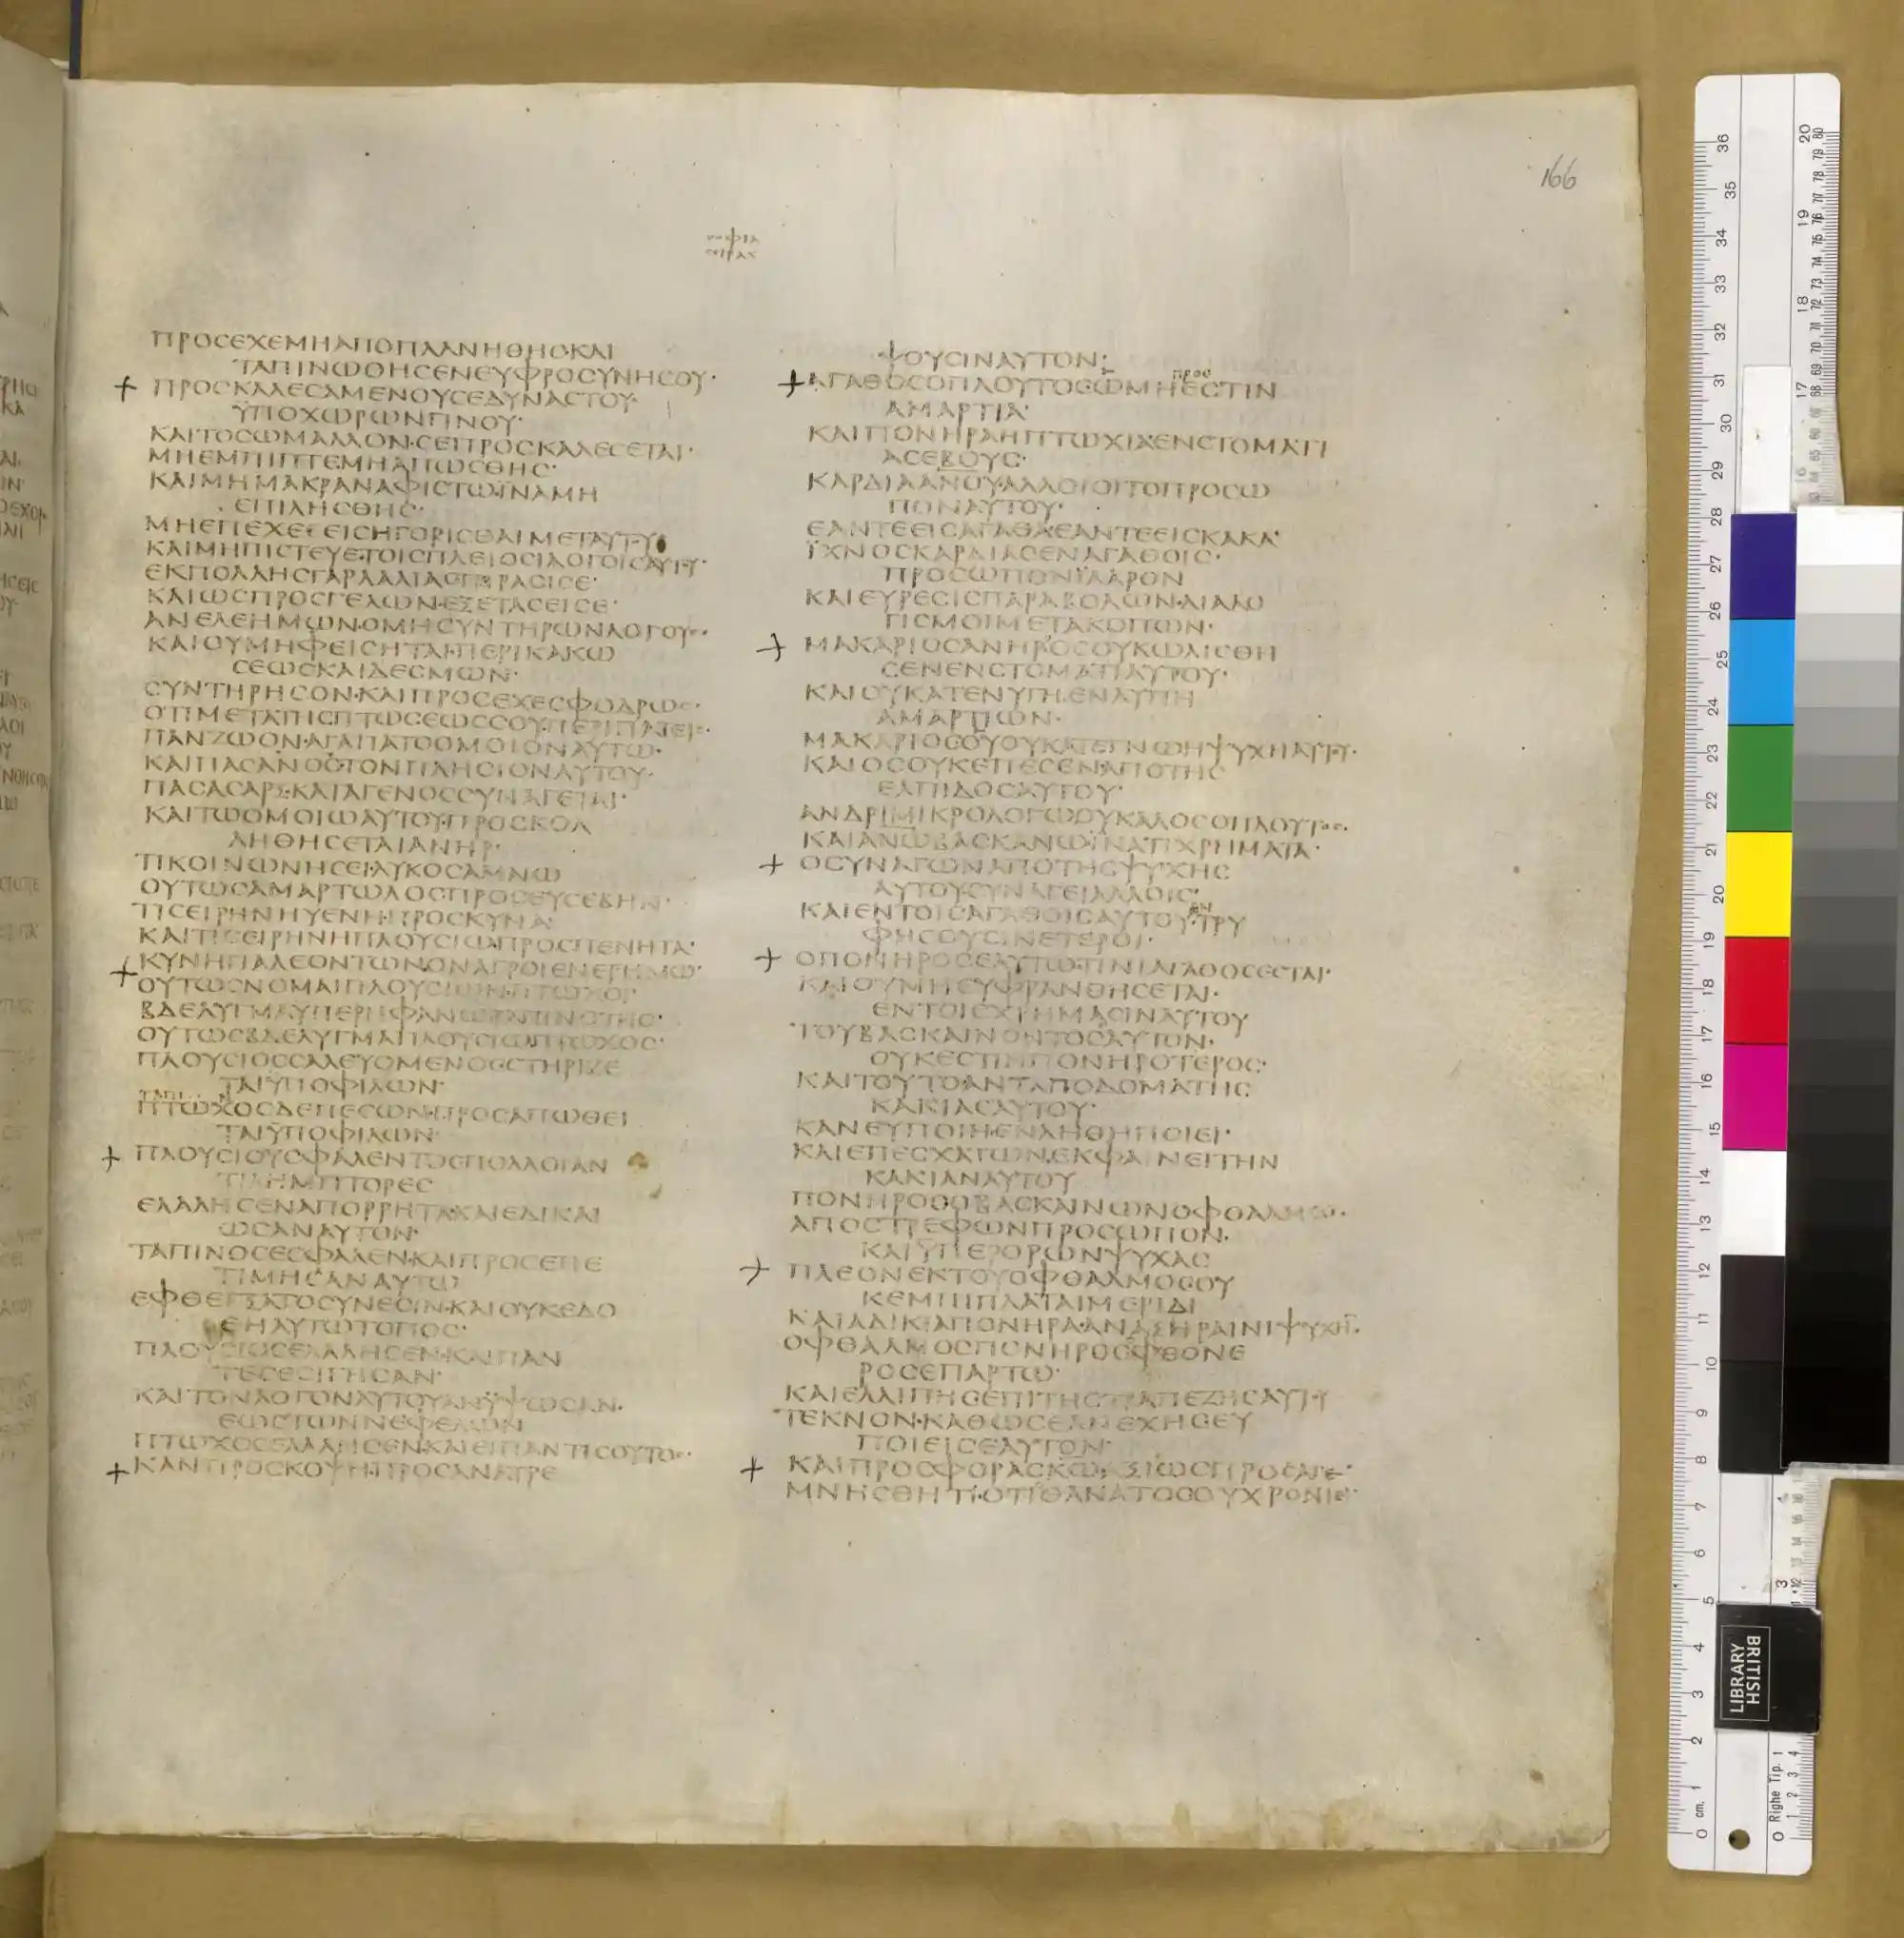 166
ϹΟΦΙΑ
ϹΙΡΑΧ
ΠΡΟϹΕΧΕΜΗΑΠΟΠΛΑΝΗΘΗϹΚΑΙ
ΤΑΠΙΝΩΘΗϹΕΝΕΥΦΡΟϹΥΝΗϹΟΥ·
ΠΡΟϹΚΑΛΕϹΑΜΕΝΟΥϹΕΔΥΝΑϹΤΟΥ·
ΫΠΟΧΩΡΩΝΓΙΝΟΥ·
ΚΑΙΤΟϹΩΜΑΛΛΟΝ·ϹΕΠΡΟϹΚΑΛΕϹΕΤΑΙ·
ΜΗΕΜΠΙΠΤΕΜΗΑΠΩϹΘΗϹ·
ΚΑΙΜΗΜΑΚΡΑΝΑΦΙϹΤΩΪΝΑΜΗ
ΕΠΙΛΗϹΘΗϹ·
ΜΗΕΠΕΧΕΕΙϹΗΓΟΡΙϹΘΑΙΜΕΤΑΥΤΥ
ΚΑΙΜΗΠΙϹΤΕΥΕΤΟΙϹΠΛΕΙΟϹΙΛΟΓΟΙϹΑΥΤΥ·
ΕΚΠΟΛΛΗϹΓΑΡΛΑΛΙΑϹΠΙΡΑϹΙϹΕ·
ΚΑΙΩϹΠΡΟϹΓΕΛΩΝ·ΕΞΕΤΑϹΕΙϹΕ·
ΑΝΕΛΕΗΜΩΝ·ΟΜΗϹΥΝΤΗΡΩΝΛΟΓΟΥϹ·
ΚΑΙΟΥΜΗΦΕΙϹΗΤΑΙΠΕΡΙΚΑΚΩ
ϹΕΩϹΚΑΙΔΕϹΜΩΝ·
ϹΥΝΤΗΡΗϹΟΝ·ΚΑΙΠΡΟϹΕΧΕϹΦΟΔΡΩϹ·
ΟΤΙΜΕΤΑΤΗϹΠΤΩϹΕΩϹϹΟΥ·ΠΕΡΙΠΑΤΕΙϹ·
ΠΑΝΖΩΟΝ·ΑΓΑΠΑΤΟΟΜΟΙΟΝΑΥΤΩ·
ΚΑΙΠΑϹΑΝΟϹΤΟΝΠΛΗϹΙΟΝΑΥΤΟΥ·
ΠΑϹΑϹΑΡΞ·ΚΑΤΑΓΕΝΟϹϹΥΝΑΓΕΤΑΙ·
ΚΑΙΤΩΟΜΟΙΩΑΥΤΟΥ·ΠΡΟϹΚΟΛ
ΛΗΘΗϹΕΤΑΙΑΝΗΡ·
ΤΙΚΟΙΝΩΝΗϹΕΙ·ΛΥΚΟϹΑΜΝΩ
ΟΥΤΩϹΑΜΑΡΤΩΛΟϹΠΡΟϹΕΥϹΕΒΗΝ·
ΤΙϹΕΙΡΗΝΗΥΕΝΗ·ΠΡΟϹΚΥΝΑ·
ΚΑΙΤΙϹΕΙΡΗΝΗΠΛΟΥϹΙΩΠΡΟϹΠΕΝΗΤΑ·
ΚΥΝΗΓΙΑΛΕΟΝΤΩΝ·ΟΝΑΓΡΟΙΕΝΕΡΗΜΩ·
ΟΥΤΩϹΝΟΜΑΙΠΛΟΥϹΙΩΝ·ΠΤΩΧΟΙ·
ΒΔΕΛΥΓΜΑΫΠΕΡΗΦΑΝΩΤΑΠΙΝΟΤΗϹ·
ΟΥΤΩϹΒΔΕΛΥΓΜΑΠΛΟΥϹΙΩΠΤΩΧΟϹ·
ΠΛΟΥϹΙΟϹϹΑΛΕΥΟΜΕΝΟϹϹΤΗΡΙΖΕ
ΤΑΙΫΠΟΦΙΛΩΝ·
ΠΤΩΧΟϹΔΕΠΕϹΩΝ·ΠΡΟϹΑΠΩΘΕΙ
ΤΑΙΫΠΟΦΙΛΩΝ·
ΠΛΟΥϹΙΟΥϹΦΑΛΕΝΤΟϹΠΟΛΛΟΙΑΝ
ΤΙΛΗΜΠΤΟΡΕϹ
ΕΛΑΛΗϹΕΝΑΠΟΡΡΗΤΑ·ΚΑΙΕΔΙΚΑΙ
ΩϹΑΝΑΥΤΟΝ·
ΤΑΠΙΝΟϹΕϹΦΑΛΕΝ·ΚΑΙΠΡΟϹΕΠΕ
ΤΙΜΗϹΑΝΑΥΤΩ
ΕΦΘΕΓΞΑΤΟϹΥΝΕϹΙΝ·ΚΑΙΟΥΚΕΔΟ
ΘΗΑΥΤΩΤΟΠΟϹ·
ΠΛΟΥϹΙΟϹΕΛΑΛΗϹΕΝ·ΚΑΙΠΑΝ
ΤΕϹΕϹΙΓΗϹΑΝ·
ΚΑΙΤΟΝΛΟΓΟΝΑΥΤΟΥΑΝΫΨΩϹΑΝ·
ΕΩϹΤΩΝΝΕΦΕΛΩΝ
ΠΤΩΧΟϹΕΛΑΛΗϹΕΝ·ΚΑΙΕΙΠΑΝΤΙϹΟΥΤΟϹ·
ΚΑΝΠΡΟϹΚΟΨΗ·ΠΡΟϹΑΝΑΤΡΕ
ΨΟΥϹΙΝΑΥΤΟΝ:
ΠΡΟϹ
ΑΓΑΘΟϹΟΠΛΟΥΤΟϹΩΜΗΕϹΤΙΝ
ΑΜΑΡΤΙΑ·
ΚΑΙΠΟΝΗΡΑΗΠΤΩΧΙΑ·ΕΝϹΤΟΜΑΤΙ
ΑϹΕΒΟΥϹ·
ΚΑΡΔΙΑΑΝΟΥ·ΑΛΛΟΙΟΙΤΟΠΡΟϹΩ
ΠΟΝΑΥΤΟΥ·
ΕΑΝΤΕΕΙϹΑΓΑΘΑ·ΕΑΝΤΕΕΙϹΚΑΚΑ·
ΪΧΝΟϹΚΑΡΔΙΑϹΕΝΑΓΑΘΟΙϹ·
ΠΡΟϹΩΠΟΝΪΛΑΡΟΝ
ΚΑΙΕΥΡΕϹΙϹΠΑΡΑΒΟΛΩΝ·ΔΙΑΛΟ
ΓΙϹΜΟΙΜΕΤΑΚΟΠΩΝ·
ΜΑΚΑΡΙΟϹΑΝΗΡΟϹΟΥΚΩΛΙϹΘΗ
ϹΕΝΕΝϹΤΟΜΑΤΙΑΥΤΟΥ·
ΚΑΙΟΥΚΑΤΕΝΥΓΗ·ΕΝΛΥΠΗ
ΑΜΑΡΤΙΩΝ·
ΜΑΚΑΡΙΟϹΟΥΟΥΚΑΤΕΓΝΩΗΨΥΧΗΑΥΤΥ·
ΚΑΙΟϹΟΥΚΕΠΕϹΕΝΑΠΟΤΗϹ
ΕΛΠΙΔΟϹΑΥΤΟΥ·
ΑΝΔΡΙΜΙΚΡΟΛΟΓΩΟΥΚΑΛΟϹΟΠΛΟΥΤΟϹ·
ΚΑΙΑΝΩΒΑϹΚΑΝΩΪΝΑΤΙΧΡΗΜΑΤΑ·
ΟϹΥΝΑΓΩΝΑΠΟΤΗϹΨΥΧΗϹ
ΑΥΤΟΥϹΥΝΑΓΕΙΑΛΛΟΙϹ·
ΚΑΙΕΝΤΟΙϹΑΓΑΘΟΙϹΑΥΤΟΥ·ΤΡΥ
ΦΗϹΟΥϹΙΝΕΤΕΡΟΙ·
ΟΠΟΝΗΡΟϹΕΑΥΤΩ·ΤΙΝΙΑΓΑΘΟϹΕϹΤΑΙ·
ΚΑΙΟΥΜΗΕΥΦΡΑΝΘΗϹΕΤΑΙ·
ΕΝΤΟΙϹΧΡΗΜΑϹΙΝΑΥΤΟΥ
ΤΟΥΒΑϹΚΑΙΝΟΝΤΟϹΑΥΤΟΝ·
ΟΥΚΕϹΤΙΝΠΟΝΗΡΟΤΕΡΟϹ·
ΚΑΙΤΟΥΤΟΑΝΤΑΠΟΔΟΜΑΤΗϹ
ΚΑΚΙΑϹΑΥΤΟΥ·
ΚΑΝΕΥΠΟΙΗ·ΕΝΛΗΘΗΠΟΙΕΙ·
ΚΑΙΕΠΕϹΧΑΤΩΝ·ΕΚΦΑΙΝΕΙΤΗΝ
ΚΑΚΙΑΝΑΥΤΟΥ
ΠΟΝΗΡΟϹΟΒΑϹΚΑΙΝΩΝΟΦΘΑΛΜΩ·
ΑΠΟϹΤΡΕΦΩΝΠΡΟϹΩΠΟΝ·
ΚΑΙΫΠΕΡΟΡΩΝΨΥΧΑϹ
ΠΛΕΟΝΕΚΤΟΥΟΦΘΑΛΜΟϹΟΥ
ΚΕΜΠΙΠΛΑΤΑΙΜΕΡΙΔΙ
ΚΑΙΑΔΙΚΙΑΠΟΝΗΡΑ·ΑΝΑΞΗΡΑΙΝΙΨΥΧΗ·
ΟΦΘΑΛΜΟϹΠΟΝΗΡΟϹΦΘΟΝΕ
ΡΟϹΕΠΑΡΤΩ·
ΚΑΙΕΛΛΙΠΗϹΕΠΙΤΗϹΤΡΑΠΕΖΗϹΑΥΤΥ
ΤΕΚΝΟΝ·ΚΑΘΩϹΕΑΝΕΧΗϹΕΥ
ΠΟΙΕΙϹΕΑΥΤΟΝ·
ΚΑΙΠΡΟϹΦΟΡΑϹΚΩΑΞΙΩϹΠΡΟϹΑΓΕ·
ΜΝΗϹΘΗΤΙ·ΟΤΙΘΑΝΑΤΟϹΟΥΧΡΟΝΙΕΙ·